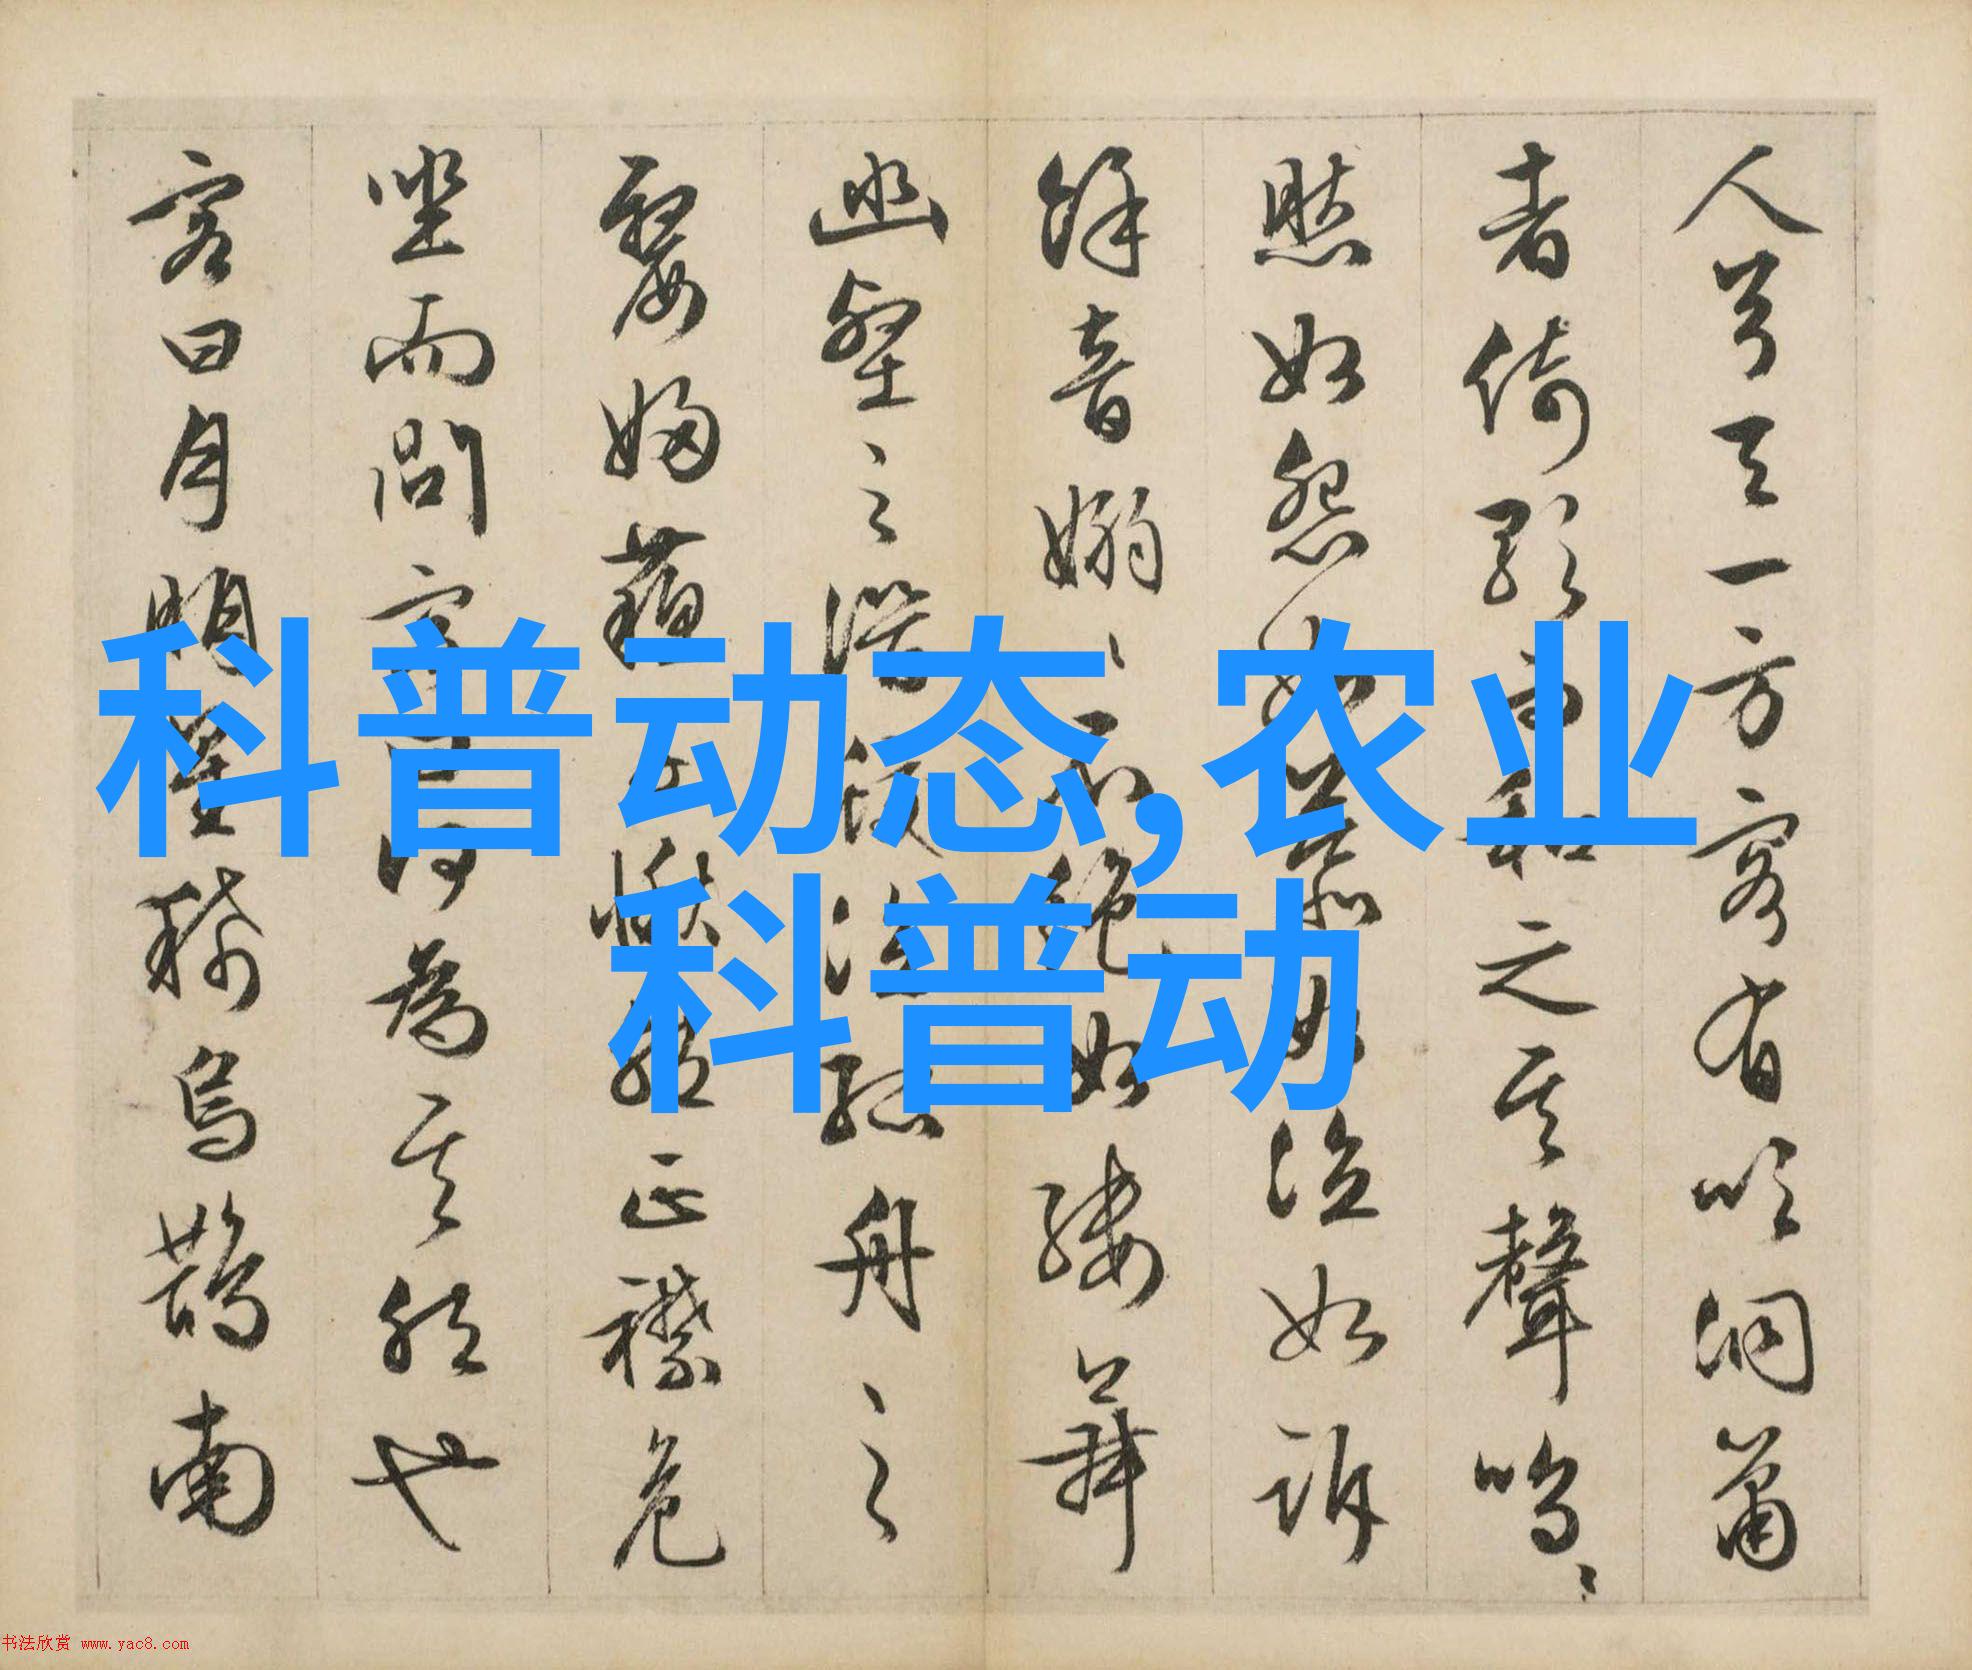 人兮天一方客有吹洞萧
者倚歌而和之其聲嗚〻
然如怨如慕如泣如訴
餘音嫋〻不絶如縷舞
幽壑之潛蛟泣孤舟之
嫠婦蘇子愀然正襟危
坐而問客曰何為其然也
客曰月明星稀烏鵲南
科普动态,农业
科普动
书法欣赏 www.yac8.com